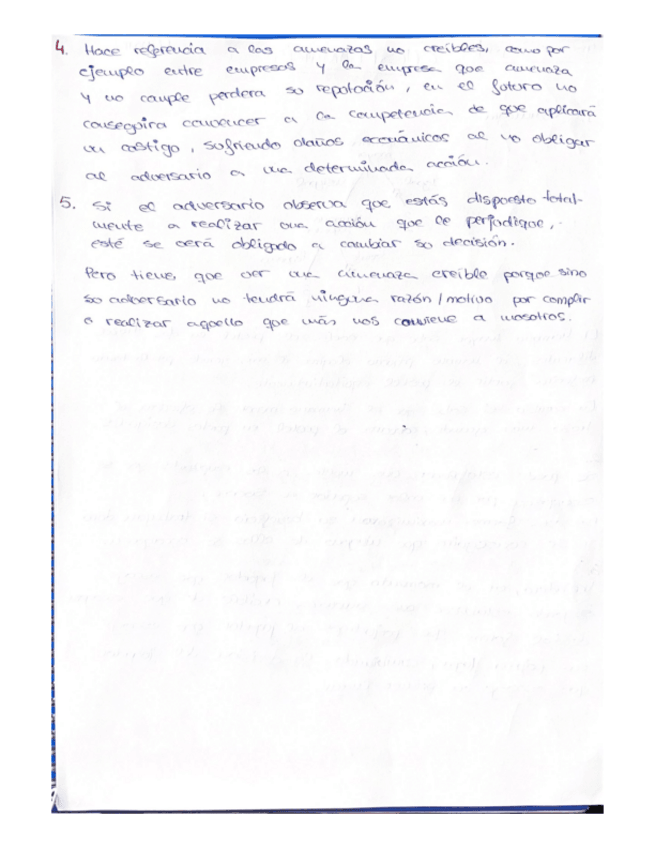 4. Hace referencia a las amenazas no creíbles, como por
ejemplo entre empresas y la empresa que amenaza
y no cumple perdera su repotación, en el futuro no
conseguira convencer a la competencia de que aplicará
un castigo, sufriendo daños económicos al no obligar
al adversario a una determinada acción.
5. Si el adversario observa que estás dispuesto total-
mente a realizar una acción que le perjudique,
esté se verá obligado a cambiar su decisión.
Pero tiene que ser una amenaza creíble porque sino
su adversario no tendrá ninguna razón/motivo por cumplir
o realizar aquello que más nos conviene a nosotros.